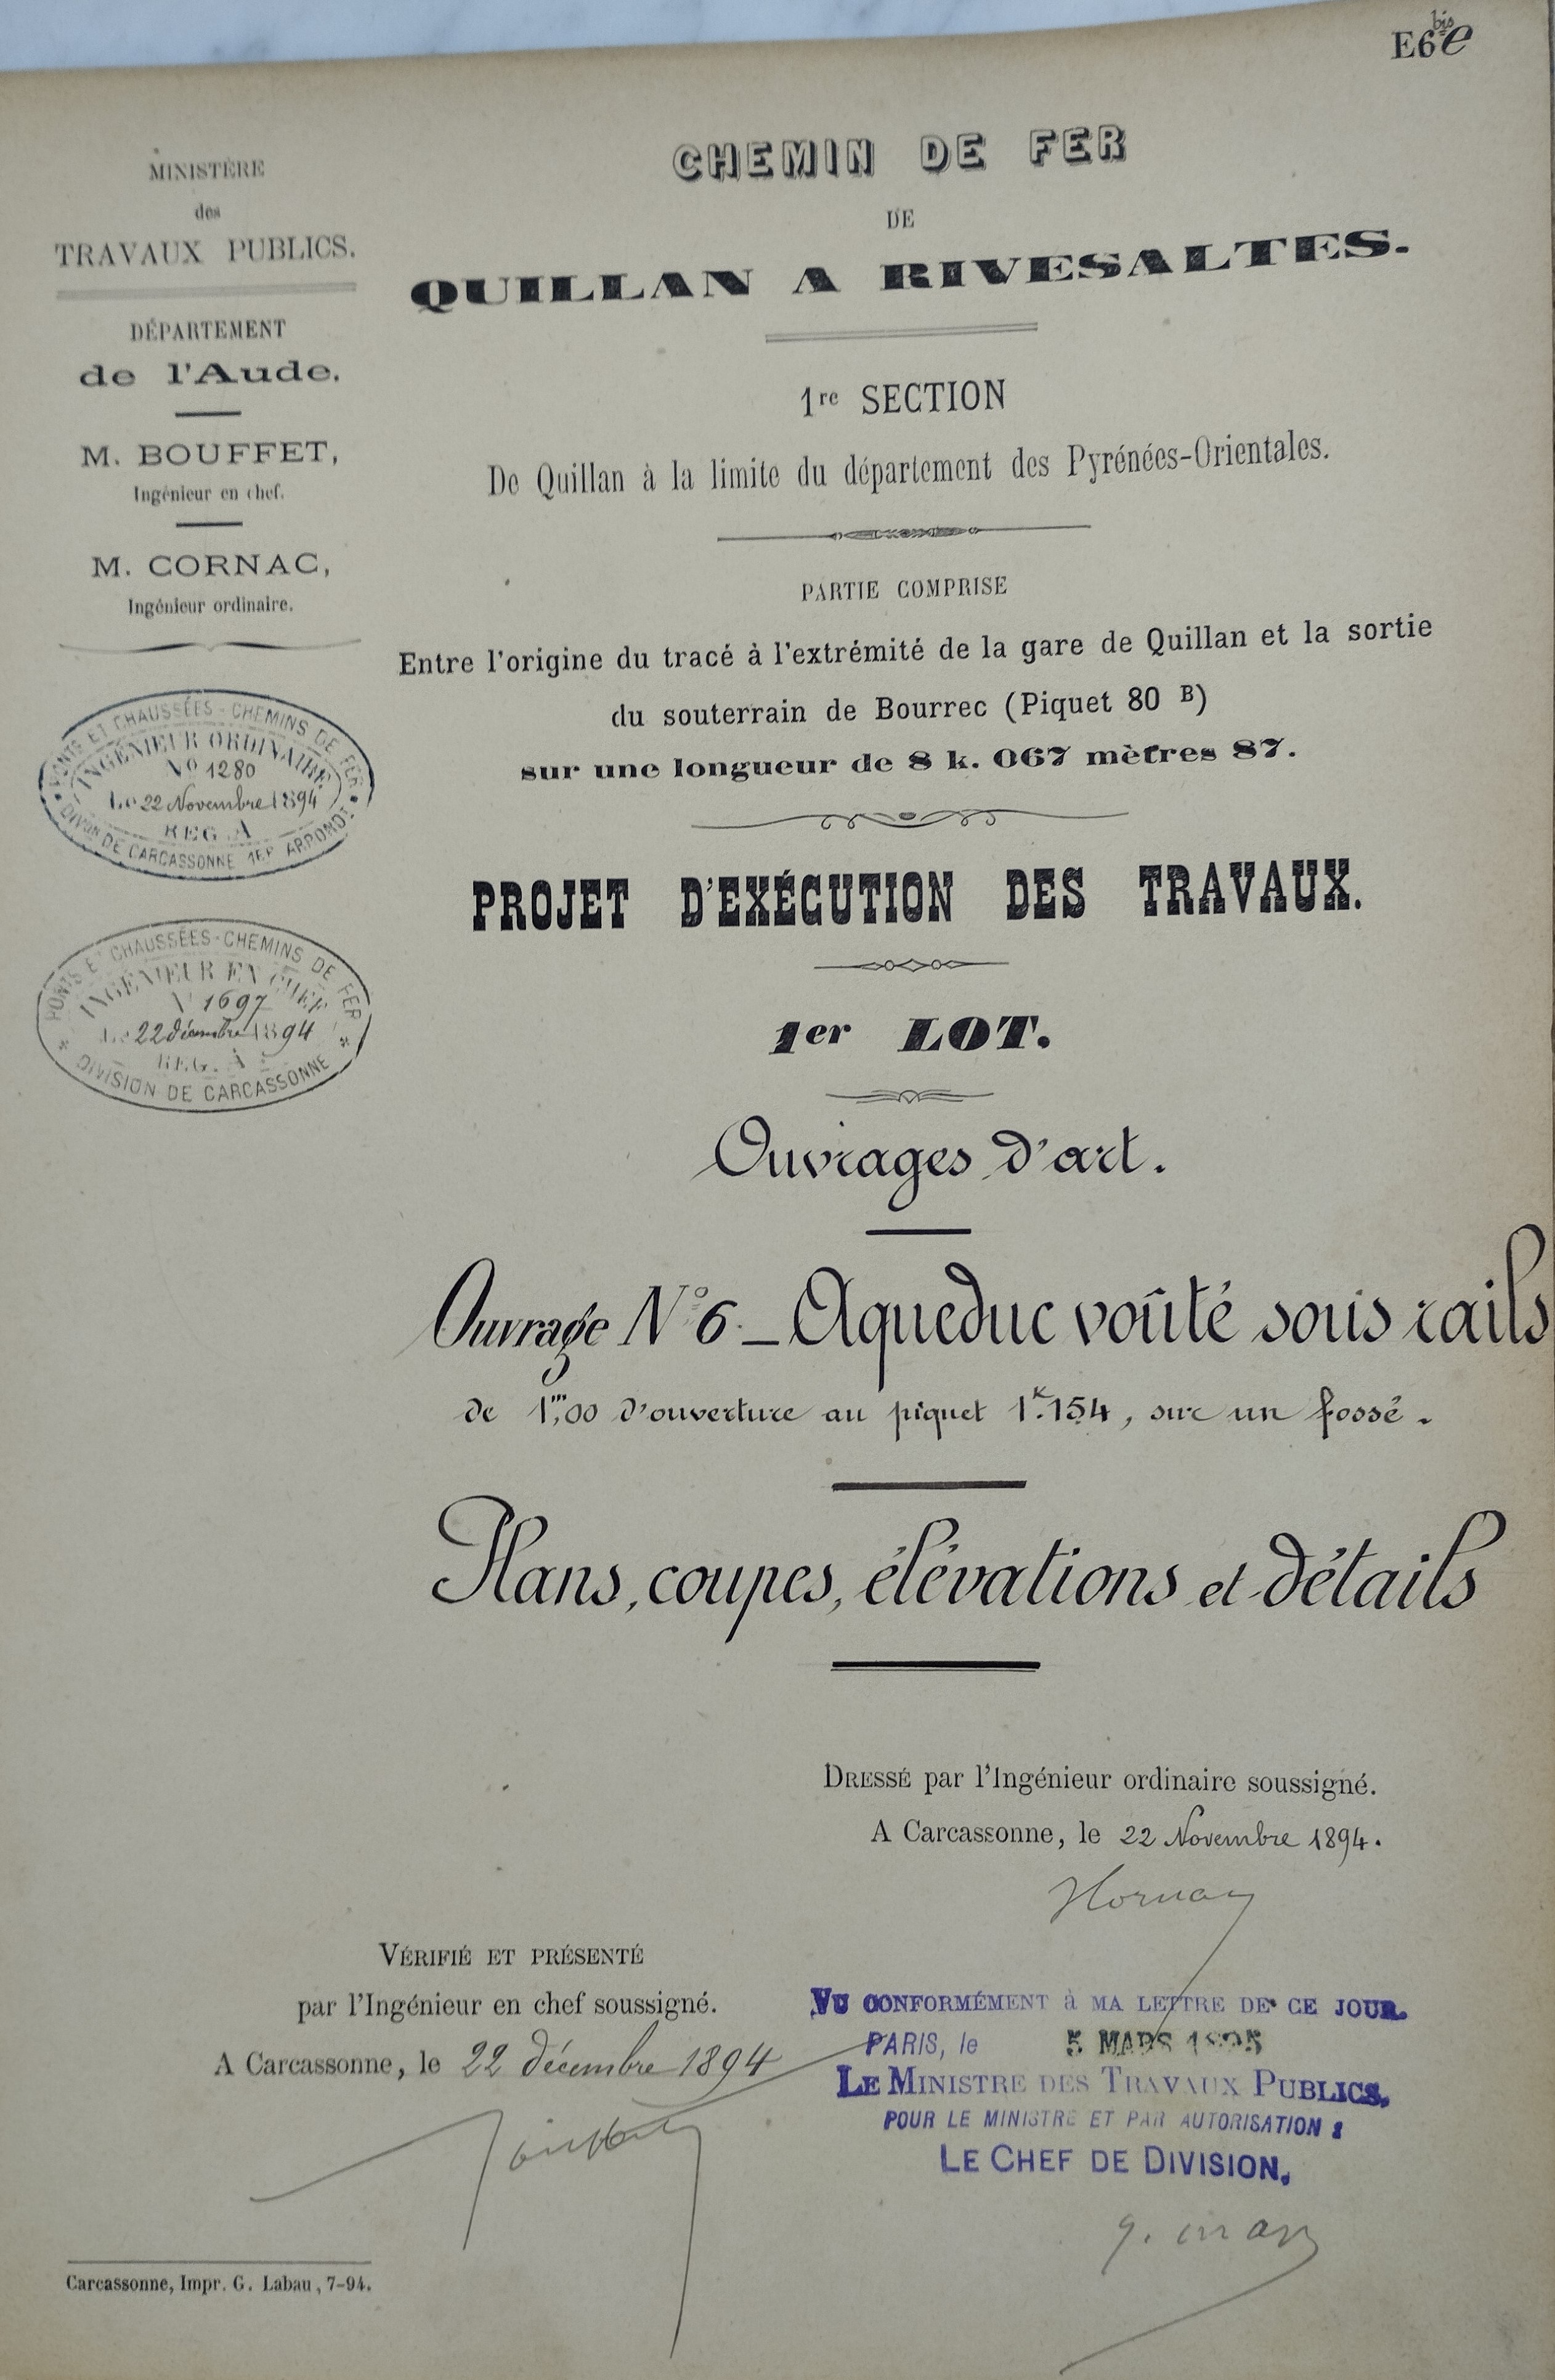 E6 bis e
MINISTÈRE
des
TRAVAUX PUBLICS.
DÉPARTEMENT
de l'Aude.
M. BOUFFET,
Ingénieur en chef.
M. CORNAC,
Ingénieur ordinaire.
PONTS ET CHAUSSÉES - CHEMINS DE FER
INGÉNIEUR ORDINAIRE
No 1280
Le 22 Novembre 1894
REG. A
DIVON DE CARCASSONNE 1ER ARRONDT
PONTS ET CHAUSSÉES - CHEMINS DE FER
INGÉNIEUR EN CHEF
N 1697
Le 22 décembre 1894
REG. A
DIVISION DE CARCASSONNE
CHEMIN DE FER
DE
QUILLAN A RIVESALTES.
1re SECTION
De Quillan à la limite du département des Pyrénées-Orientales.
PARTIE COMPRISE
Entre l'origine du tracé à l'extrémité de la gare de Quillan et la sortie
du souterrain de Bourrec (Piquet 80 B)
sur une longueur de 8 k. 067 mètres 87.
PROJET D'EXÉCUTION DES TRAVAUX.
1er LOT.
Ouvrages d'art.
Ouvrage N° 6 - Aqueduc voûté sous rails
de 1m,00 d'ouverture au piquet 1K.154, sur un fossé.
Plans, coupes, élévations et détails
DRESSÉ par l'Ingénieur ordinaire soussigné.
A Carcassonne, le 22 Novembre 1894.
VÉRIFIÉ ET PRÉSENTÉ
par l'Ingénieur en chef soussigné.
A Carcassonne, le 22 décembre 1894
VU CONFORMÉMENT à MA LETTRE DE CE JOUR.
PARIS, le 5 MARS 1895
LE MINISTRE DES TRAVAUX PUBLICS,
POUR LE MINISTRE ET PAR AUTORISATION :
LE CHEF DE DIVISION,
Carcassonne, Impr. G. Labau, 7-94.